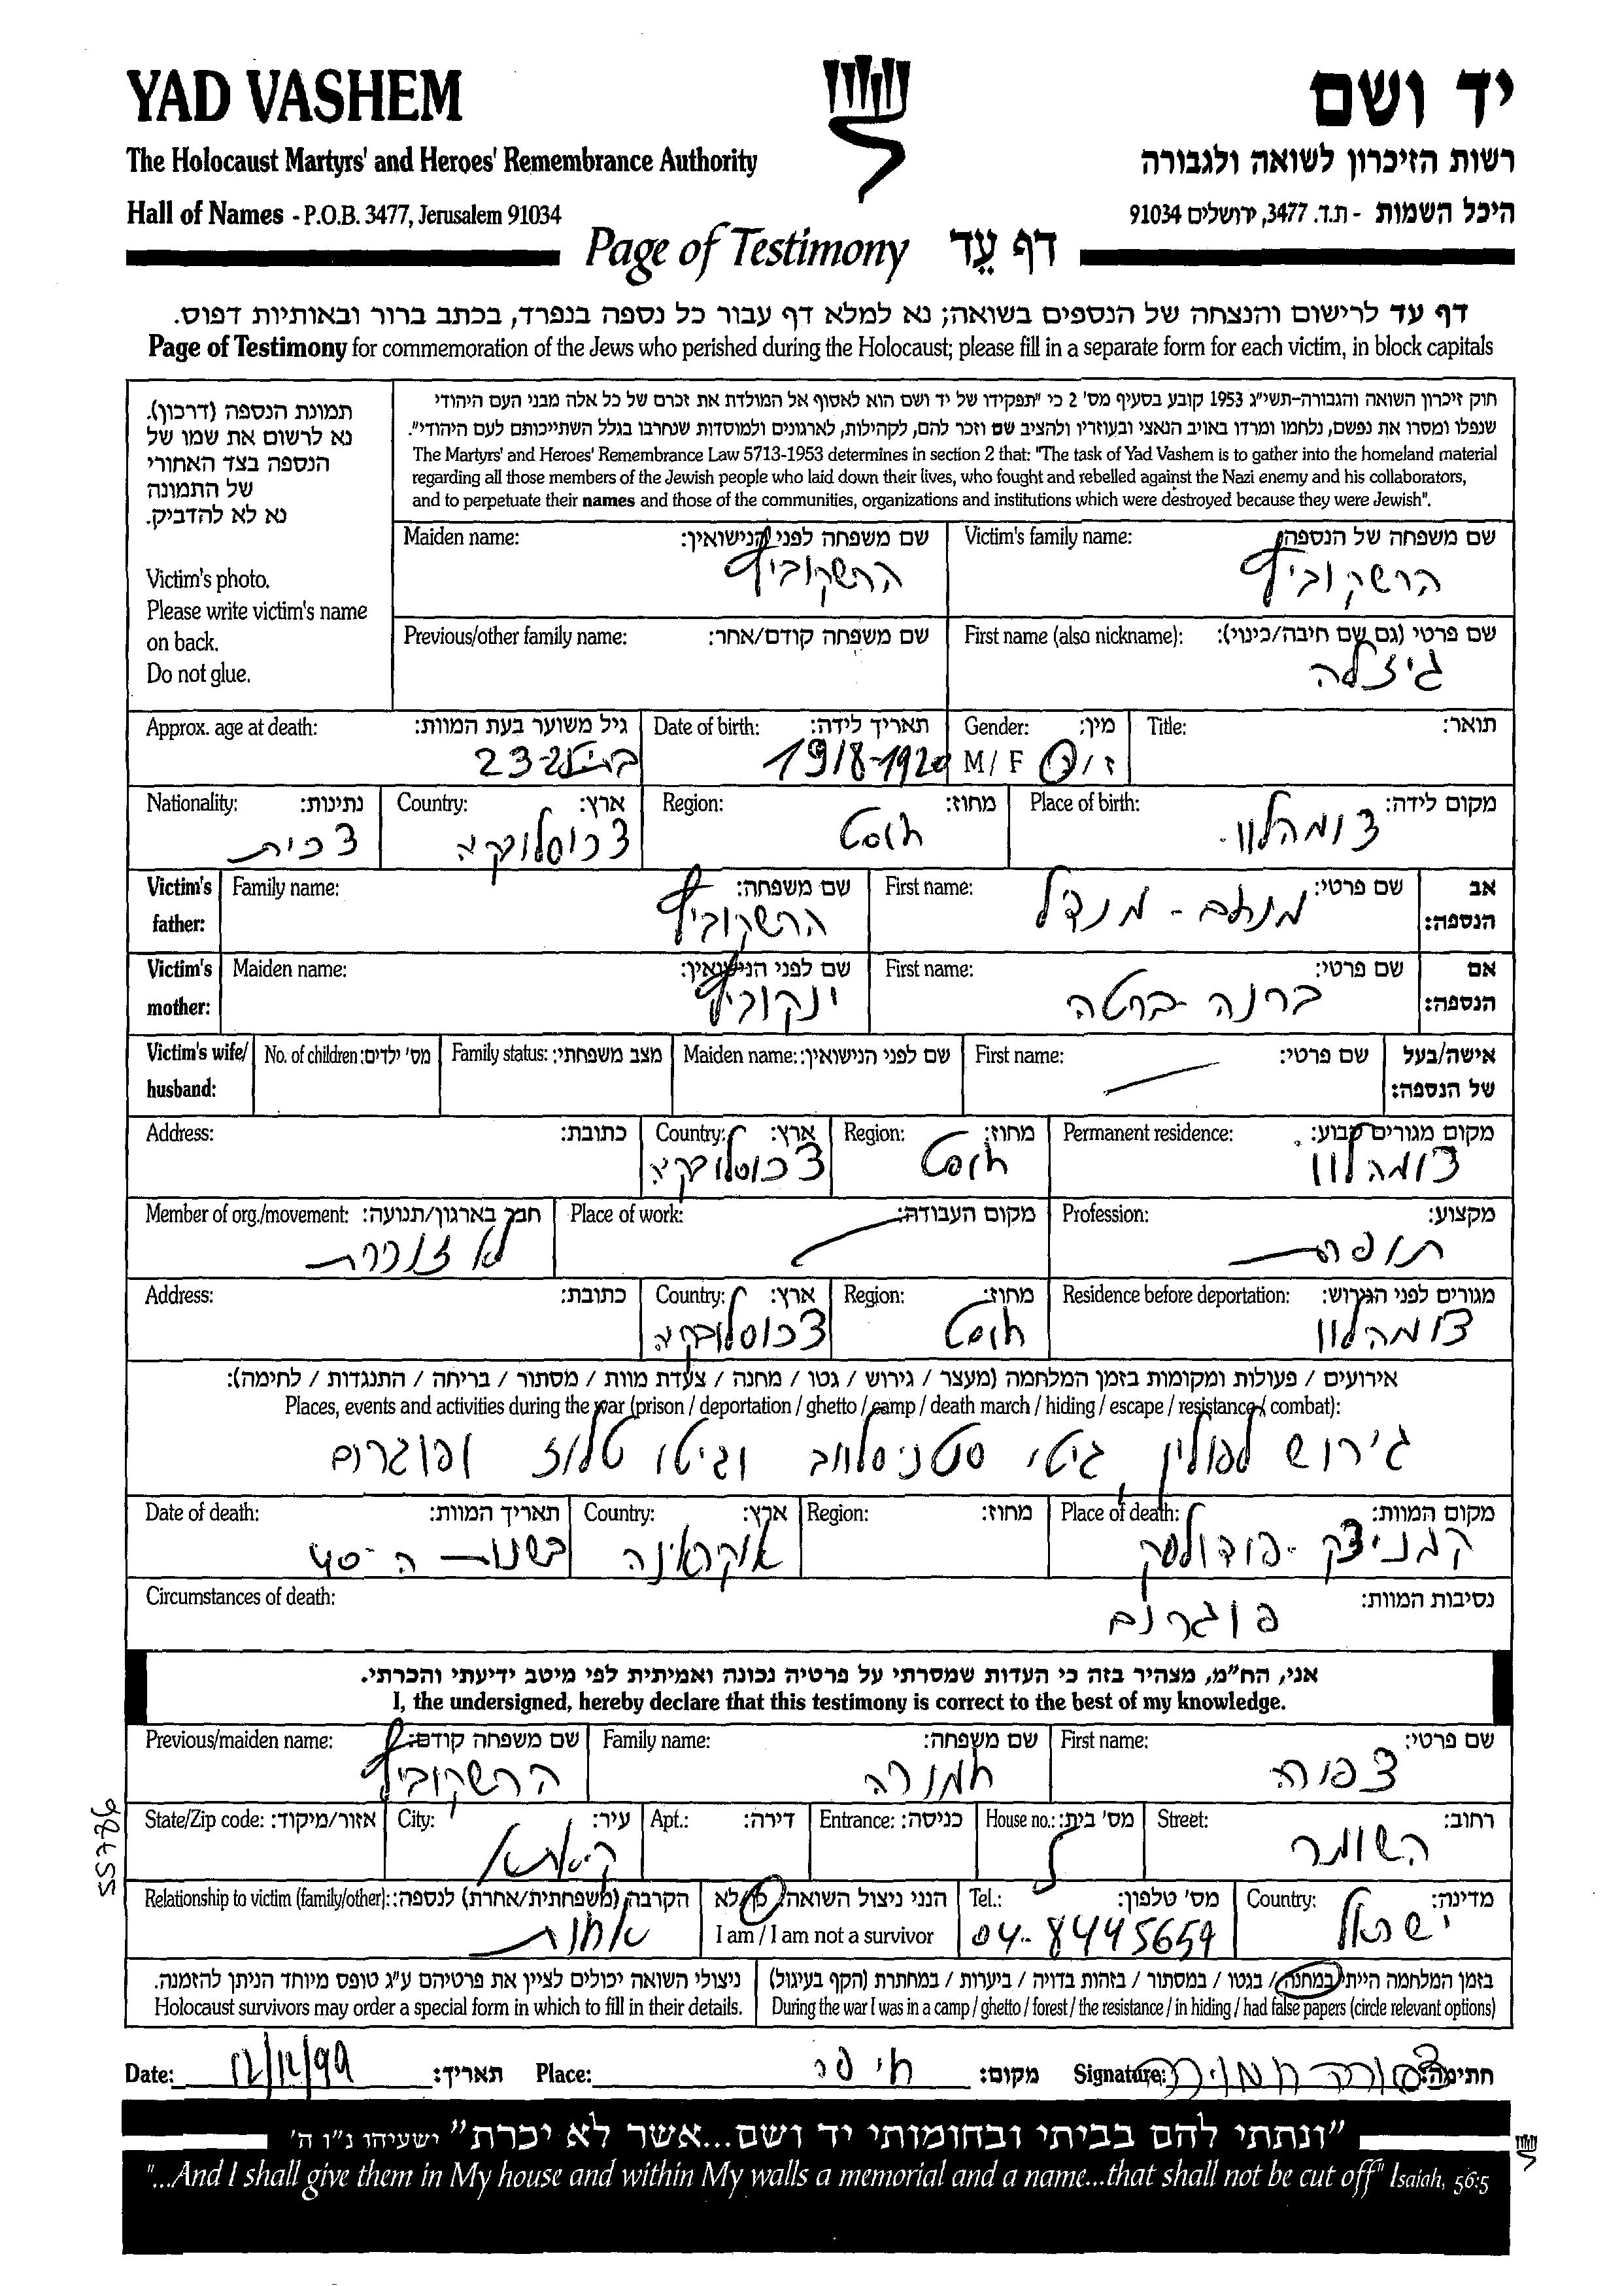 YAD VASHEM
יד ושם
The Holocaust Martyrs' and Heroes' Remembrance Authority
רשות הזיכרון לשואה ולגבורה
Hall of Names - P.O.B. 3477, Jerusalem 91034
היכל השמות - ת.ד. 3477, ירושלים 91034
Page of Testimony דף עֵד
דף עד לרישום והנצחה של הנספים בשואה; נא למלא דף עבור כל נספה בנפרד, בכתב ברור ובאותיות דפוס.
Page of Testimony for commemoration of the Jews who perished during the Holocaust; please fill in a separate form for each victim, in block capitals
תמונת הנספה (דרכון).
נא לרשום את שמו של
הנספה בצד האחורי
של התמונה
נא לא להדביק.
Victim's photo.
Please write victim's name
on back.
Do not glue.
חוק זיכרון השואה והגבורה-תשי"ג 1953 קובע בסעיף מס' 2 כי "תפקידו של יד ושם הוא לאסוף אל המולדת את זכרם של כל אלה מבני העם היהודי
שנפלו ומסרו את נפשם, נלחמו ומרדו באויב הנאצי ובעוזריו ולהציב שם וזכר להם, לקהילות, לארגונים ולמוסדות שנחרבו בגלל השתייכותם לעם היהודי".
The Martyrs' and Heroes' Remembrance Law 5713-1953 determines in section 2 that: "The task of Yad Vashem is to gather into the homeland material
regarding all those members of the Jewish people who laid down their lives, who fought and rebelled against the Nazi enemy and his collaborators,
and to perpetuate their names and those of the communities, organizations and institutions which were destroyed because they were Jewish".
Victim's family name: שם משפחה של הנספה:
הרשקוביץ
Maiden name: שם משפחה לפני הנישואין:
הרשקוביץ
First name (also nickname): שם פרטי (גם שם חיבה/כינוי):
גיזלה
Previous/other family name: שם משפחה קודם/אחר:
Title: תואר:
Gender: מין:
M / F ז / נ
Date of birth: תאריך לידה:
19/8-1920
Approx. age at death: גיל משוער בעת המוות:
בגיל 23
Place of birth: מקום לידה:
צומהלוו
Region: מחוז:
חוסט
Country: ארץ:
צכוסלוקיה
Nationality: נתינות:
צכית
Victim's father: אב הנספה:
First name: שם פרטי:
מנחם - מנדל
Family name: שם משפחה:
הרשקוביץ
Victim's mother: אם הנספה:
First name: שם פרטי:
ברנה - ברטה
Maiden name: שם לפני הנישואין:
ינקוביץ
Victim's wife/ husband: אישה/בעל של הנספה:
First name: שם פרטי:
Maiden name: שם לפני הנישואין:
Family status: מצב משפחתי:
No. of children: מס' ילדים:
Permanent residence: מקום מגורים קבוע:
צומהלוו
Region: מחוז:
חוסט
Country: ארץ:
צכוסלוקיה
Address: כתובת:
Profession: מקצוע:
תופרת
Place of work: מקום העבודה:
Member of org./movement: חבר בארגון/תנועה:
לא זוכרת
Residence before deportation: מגורים לפני הגירוש:
צומהלוו
Region: מחוז:
חוסט
Country: ארץ:
צכוסלוקיה
Address: כתובת:
אירועים / פעולות ומקומות בזמן המלחמה (מעצר / גירוש / גטו / מחנה / צעדת מוות / מסתור / בריחה / התנגדות / לחימה):
Places, events and activities during the war (prison / deportation / ghetto / camp / death march / hiding / escape / resistance / combat):
גירוש לפולין, גיטו סטניסלווב וגיטו ופוגרום
Place of death: מקום המוות:
קמניצק - פודולסק
Region: מחוז:
Country: ארץ:
אוקראינה
Date of death: תאריך המוות:
בשנות ה-40
Circumstances of death: נסיבות המוות:
פוגרום
אני, הח"מ, מצהיר בזה כי העדות שמסרתי על פרטיה נכונה ואמיתית לפי מיטב ידיעתי והכרתי.
I, the undersigned, hereby declare that this testimony is correct to the best of my knowledge.
First name: שם פרטי:
צפורה
Family name: שם משפחה:
חמורה
Previous/maiden name: שם משפחה קודם:
הרשקוביץ
Street: רחוב:
השומר
House no.: מס' בית:
Entrance: כניסה:
Apt.: דירה:
City: עיר:
State/Zip code: אזור/מיקוד:
Country: מדינה:
ישראל
Tel.: מס' טלפון:
04-8445659
הנני ניצול השואה: כן/לא
I am / I am not a survivor
Relationship to victim (family/other): הקרבה (משפחתית/אחרת) לנספה:
אחות
בזמן המלחמה הייתי במחנה / בגטו / במסתור / בזהות בדויה / ביערות / במחתרת (הקף בעיגול)
During the war I was in a camp / ghetto / forest / the resistance / in hiding / had false papers (circle relevant options)
ניצולי השואה יכולים לציין את פרטיהם ע"ג טופס מיוחד הניתן להזמנה.
Holocaust survivors may order a special form in which to fill in their details.
55786
Date: 12/12/99 תאריך: Place: חיפה מקום: Signature: צפורה חמורה חתימה:
"ונתתי להם בביתי ובחומותי יד ושם...אשר לא יכרת" ישעיהו נ"ו ה'
"...And I shall give them in My house and within My walls a memorial and a name...that shall not be cut off" Isaiah, 56:5